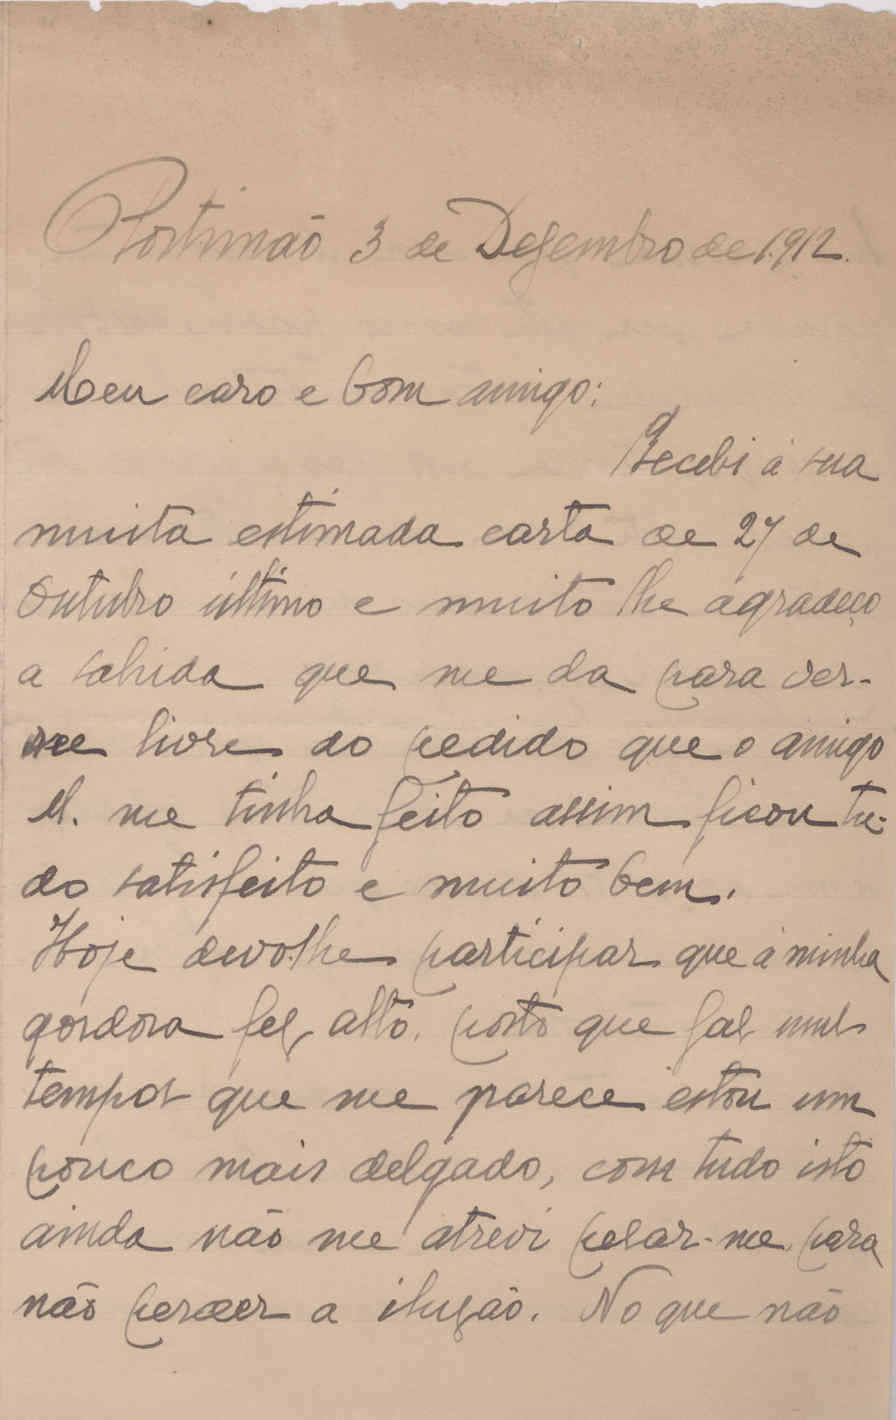 Portimão 3 de Dezembro de 1912.
Meu caro e bom amigo:
Recebi á sua
muita estimada carta de 27 de
Outubro último e muito lhe agradeço
a sahida que me da para ver-
me livre do pedido que o amigo
M. me tinha feito assim ficou tu-
do satisfeito e muito bem.
Hoje devo-lhe participar que á minha
gordora fez alto, posto que faz uns
tempos que me parece estou um
pouco mais delgado, com tudo isto
ainda não me atrevi pesar-me para
não perder a iluzão. No que não